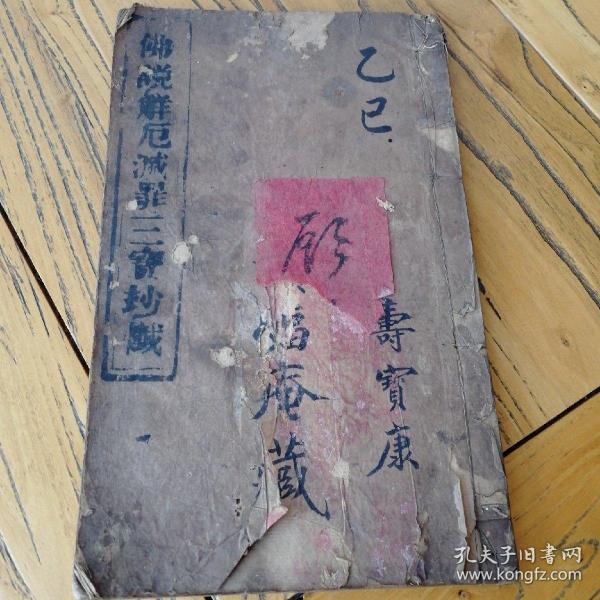 乙巳
壽寶康
福庵藏
佛說解厄滅罪三寶抄懺
孔夫子旧书网
www.kongfz.com